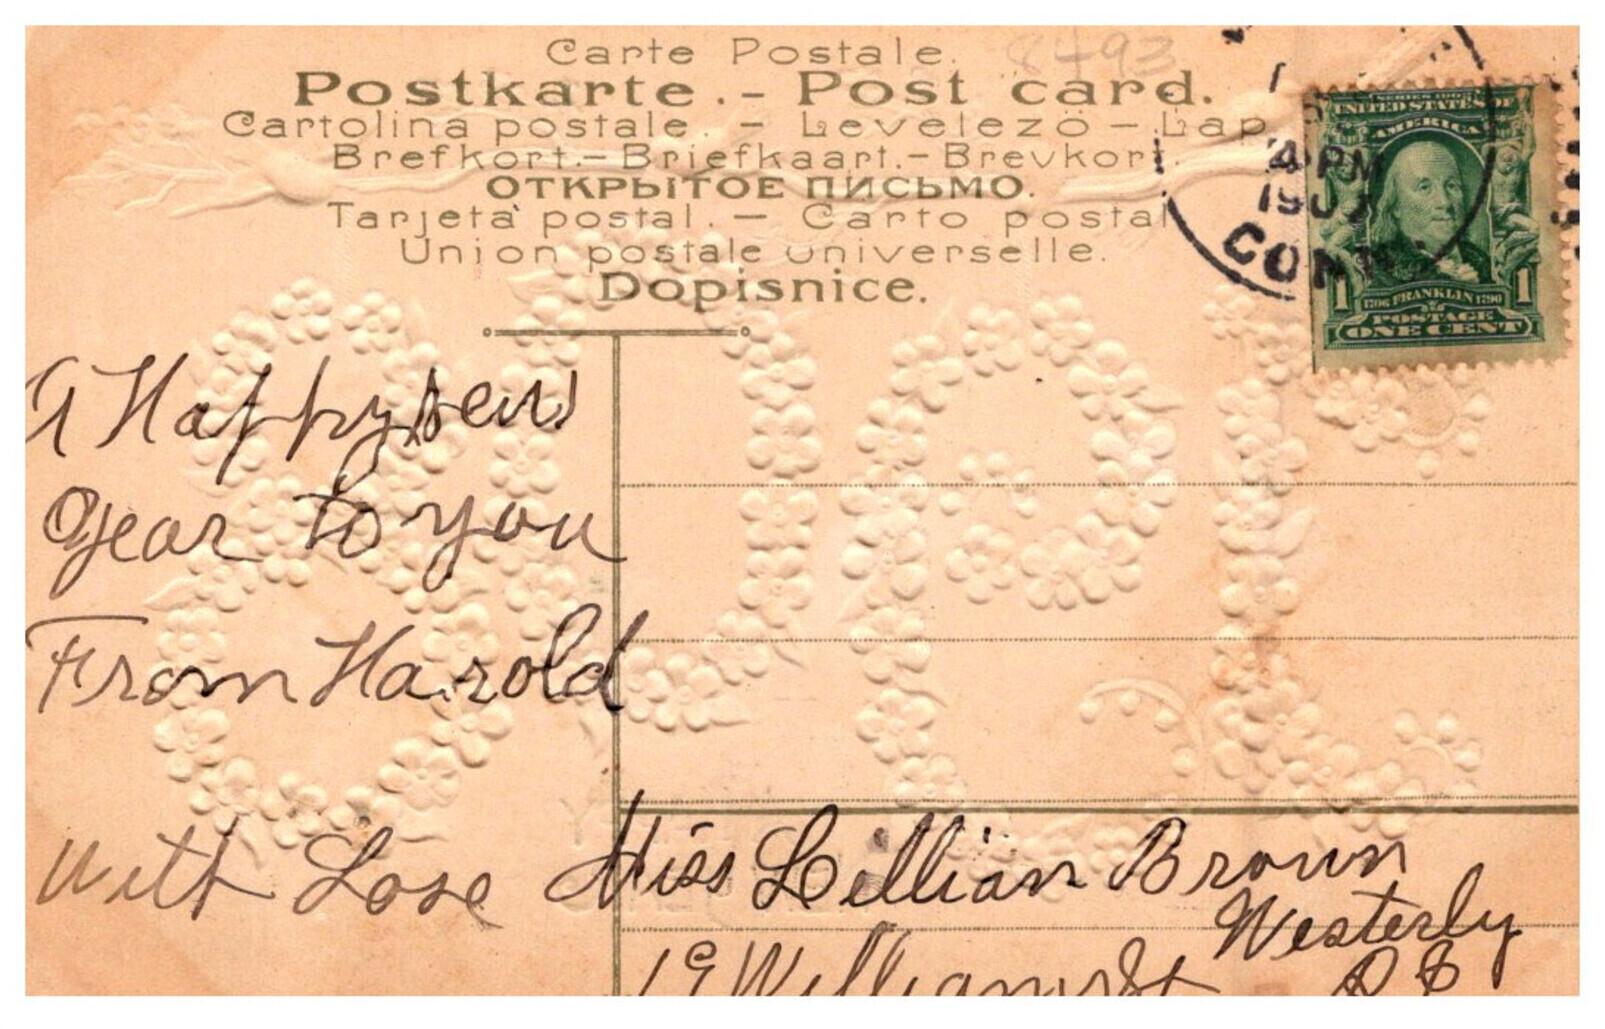 Carte Postale. 8493
Postkarte . - Post card.
Cartolina postale. - Levelezö - Lap
Brefkort. - Briefkaart. - Brevkort.
ОТКРЫТОЕ ПИСЬМО.
Tarjeta postal. - Carto postal
Union postale universelle.
Dopisnice.
4 PM
190
CONN.
SERIES 1902
UNITED STATES OF
AMERICA
1 1706 FRANKLIN 1790 1
POSTAGE
ONE CENT
A Happy New
Year to you
From Harold
With Love
Miss Lillian Brown
Westerly
19 William St R I